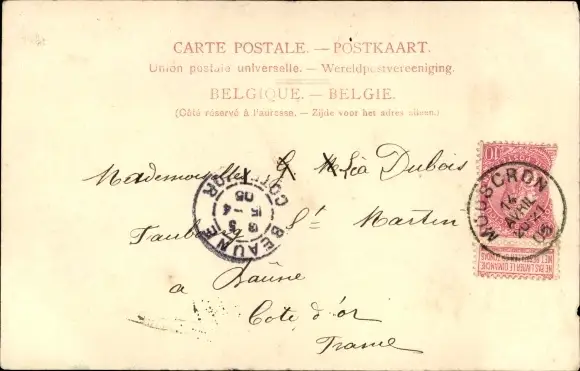 CARTE POSTALE. — POSTKAART.
Union postale universelle. — Wereldpostvereeniging.
BELGIQUE. — BELGIE.
(Côté réservé à l'adresse. — Zijde voor het adres alleen.)
Mademoiselle G Léa Dubois
Faubourg St Martin
à Baûne
Cote d'or
France
BEAUNE
COTE D'OR
15 - 4
05
MOUSCRON
14
AVRIL
20-21
05
10
NE PAS LIVRER LE DIMANCHE
NIET BESTELLEN OP ZONDAG